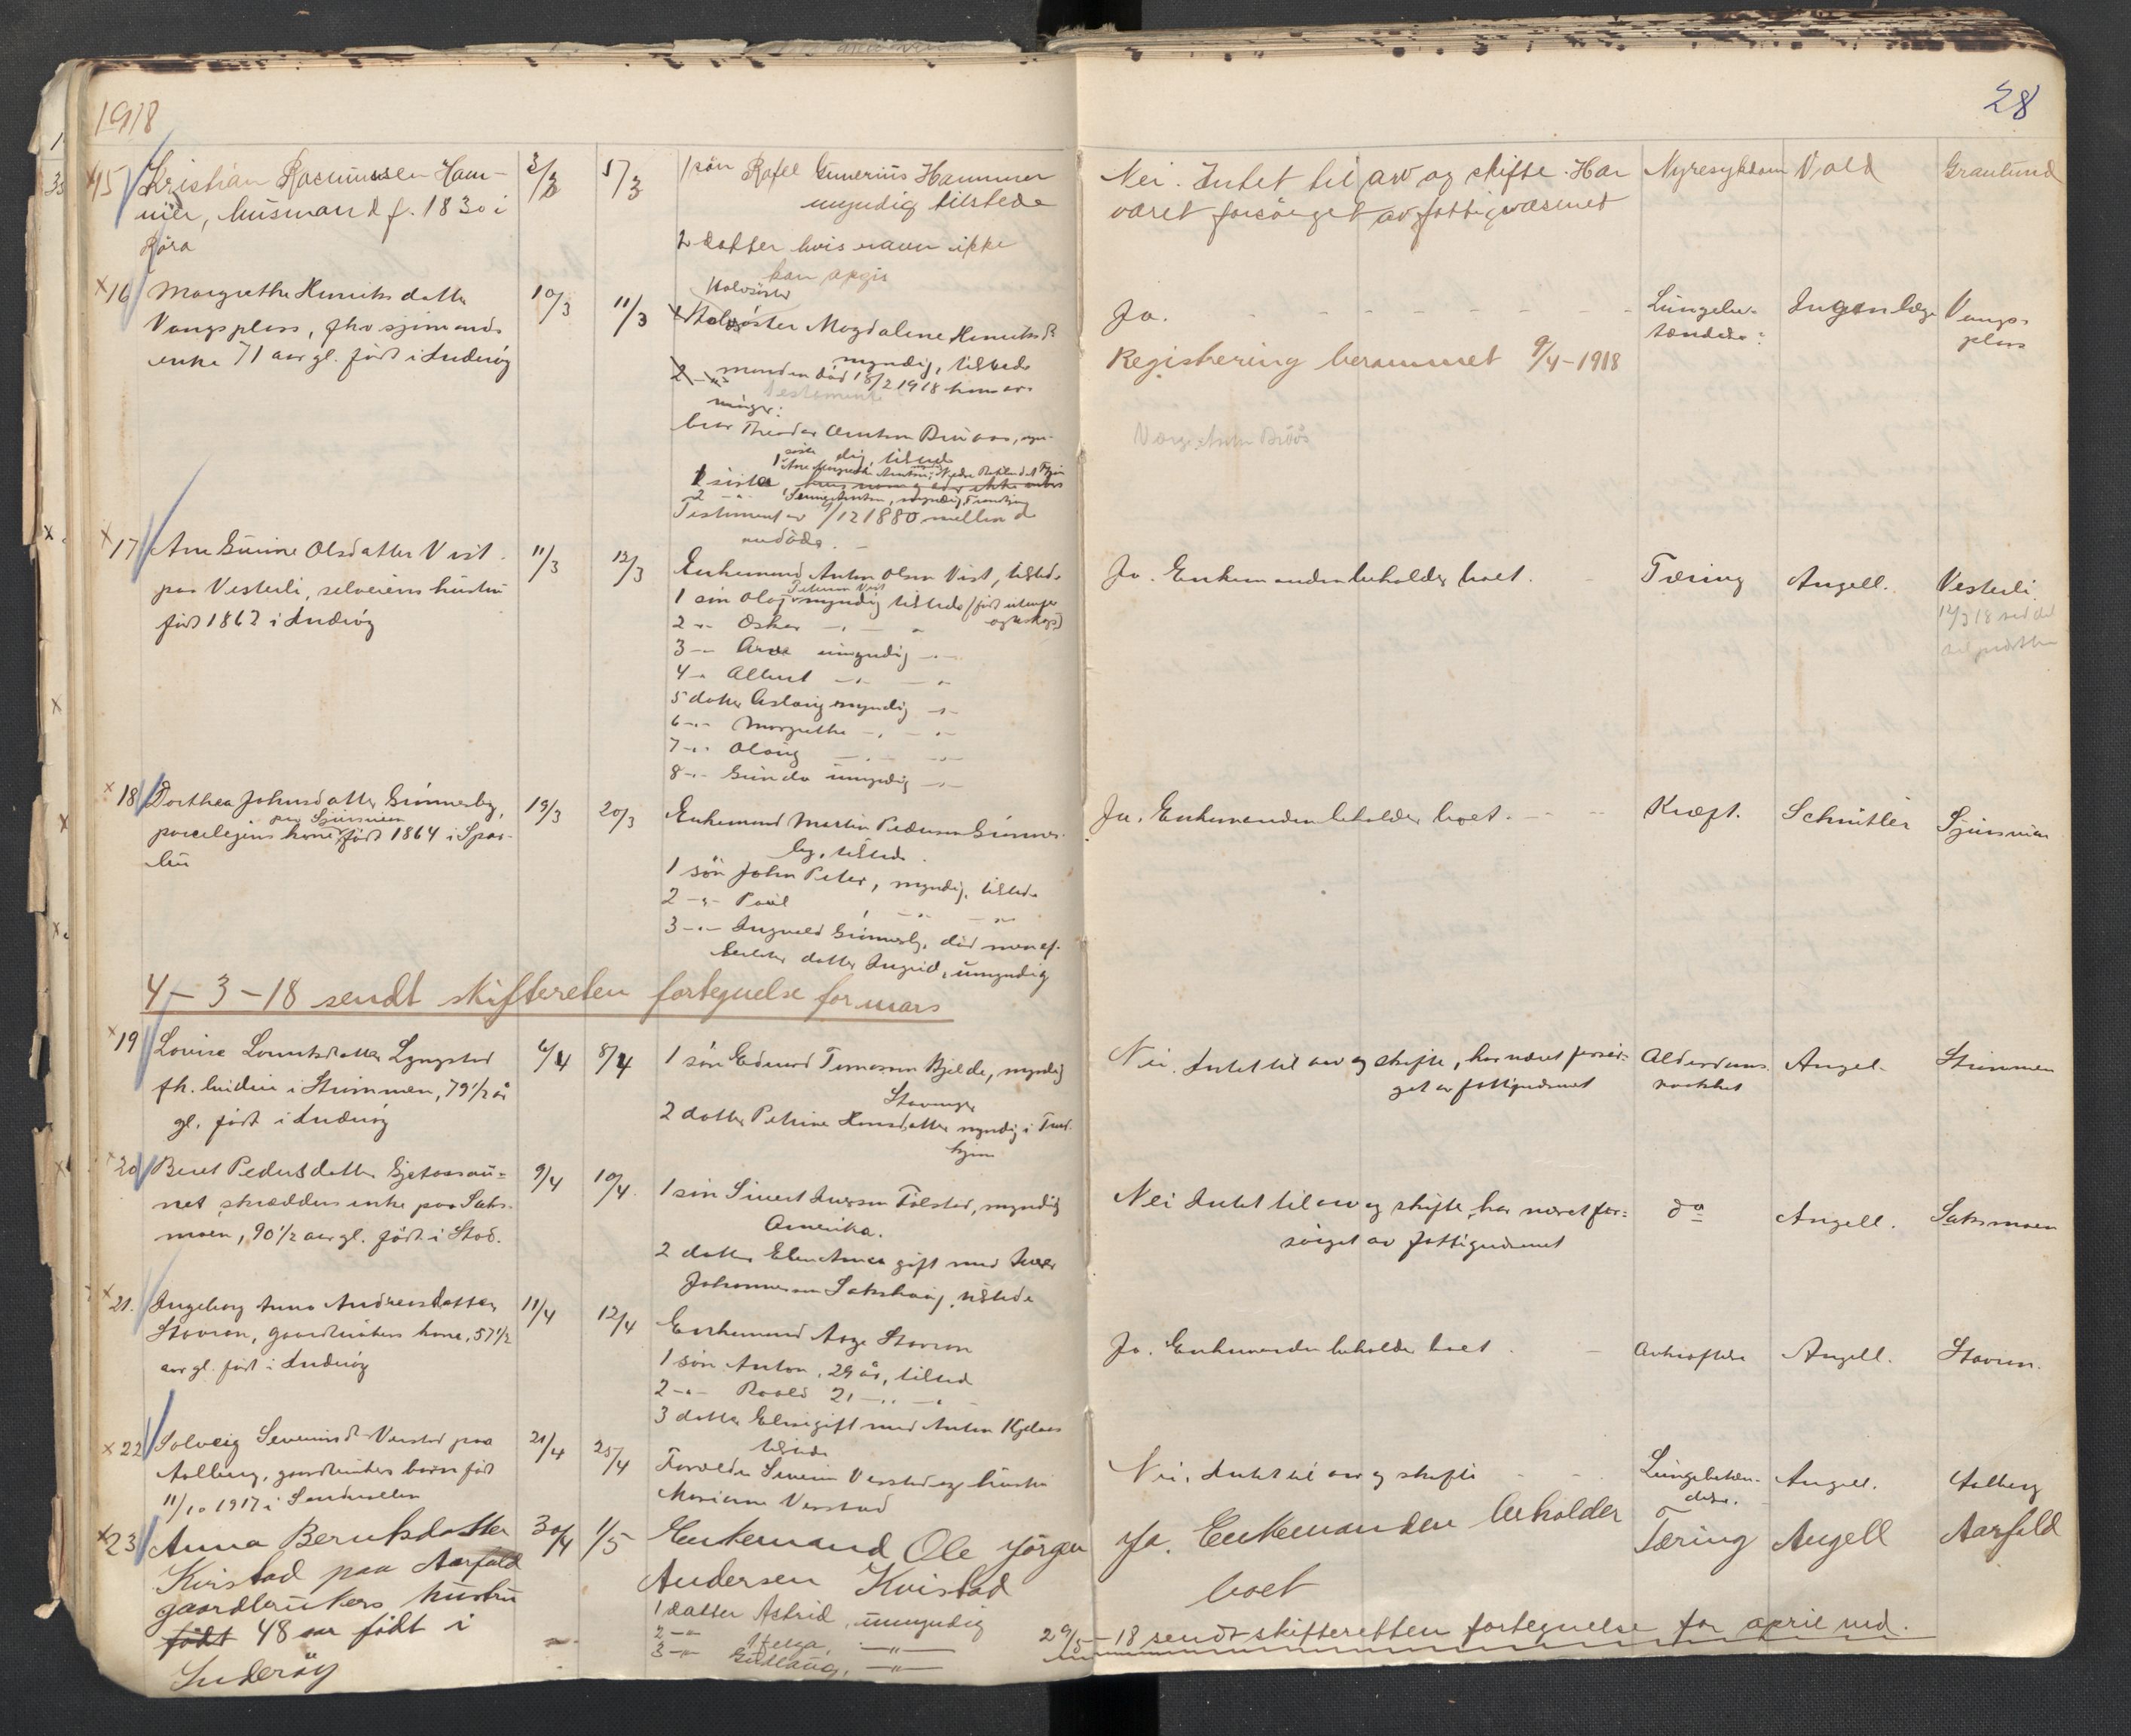 1918
28
15 Kristian Rasmussen Ham-
mer, husmand f. 1830 i
Røra
3/3
5/3
1 søn Rafel Gunerius Hammer
myndig tilstede
2 datter hvis navn ikke
kan opgis
Nei. Intet til arv og skifte. Har
været forsørget av fattigvæsenet
Nyresykdom
Vold
Granlund
x16 Margrethe Henriksdatter
Vangsplass, fhv sjømands
enke 71 aar gl. født i Inderøy
10/3
11/3
Halvsøster
Halvsøster Magdalene Henriksdr
myndig, tilstede
2 -"- manden død 18/2 1918 hans ar-
Testamente
vinger:
bror Theodor Anton Bruaas, myn-
dig, tilstede
1 søster
2 -"-
Testament av 9/12 1880 mellem de
avdøde.
Ja. - - - - - - -
Registrering berammet 9/4-1918
Lungebe-
tændelse
Ingen læge
Vangs-
plass
x17 Ane Gurine Olsdatter Vist
paa Vesterli, selveiers hustru
født 1862 i Inderøy
11/3
12/3
Enkemand Anton Olsen Vist, tilstede
Petersen Vist
1 søn Olaf myndig tilstede (født utenfor
egteskap)
2 -"- Oskar -"- -"-
3 -"- Arne umyndig -"-
4 -"- Albert -"- -"-
5 datter Aslaug myndig -"-
6 -"- Margrethe -"- -"-
7 -"- Olaug -"- -"-
8 -"- Gunda umyndig -"-
Ja. Enkemanden beholder boet.
Tæring
Angell.
Vesterli
x18 Dorthea Johnsdatter Grønnesby,
paa Sjursvien
parcelejers kone, født 1864 i Spar-
bu
19/3
20/3
Enkemand Martin Pedersen Grønnes-
by, tilstede.
1 søn John Peter, myndig, tilstede
2 -"- Paul -"- -"-
3 -"- Ingvald Grønnesby, død men ef-
terlater datter Ingrid, umyndig
Ja. Enkemanden beholder boet.
Kræft.
Schnitler
Sjursvien
4-3-18 sendt skifteretten fortegnelse for mars
x19 Lovise Lorntsdatter Lyngstad
fh. budeie i Strømmen, 79 1/2 år
gl. født i Inderøy
6/4
8/4
1 søn Edvard Tomassen Bjelde, myndig
Stavanger
2 datter Petrine Hansdatter myndig i Trond-
hjem
Nei. Intet til arv og skifte, har været forsør-
get av fattigvæsenet
Alderdoms
svakhet
Angel.
Strømmen
x20 Beret Pedersdatter Gjetøssau-
net, skrædders enke paa Saks-
moen, 90 1/2 aar gl. født i Stod.
9/4
10/4.
1 søn Sivert Iversen Tilstad, myndig
Amerika.
2 datter Elen Anna gift med Iver
Johannessen Sakshaug, tilstede
Nei Intet til arv og skifte, har været for-
sørget av fattigvæsenet
do
Angell.
Saksmoen
x21. Ingeborg Anna Andreasdatter
Stavran, gaardbrukers kone, 57 1/2
aar gl. født i Inderøy
11/4
12/4
Enkemand Aage Stavran
1 søn Anton, 29 år, tilsted
2 -"- Roald 21 -"- -"-
3 datter Eline gift med Anton Kjelaas
tilstede
Ja. Enkemanden beholder boet.
Avkræftelse
Angell.
Stavran.
x22 Solveig Severinsdr Verstad paa
Aalberg, gaardbrukers barn født
11/10 1917 i Sandvollan
21/4
25/4
Forældre Severin Verstad og hustru
Marianne Verstad
Nei. Intet til arv og skifte
Lungebetæn-
delse.
Angell.
Aalberg
x23 Anna Berntsdatter
Kvistad paa Aarfald
gaardbrukers hustru
født 48 aar født i
Inderøy
30/4
1/5
Enkemand Ole Jørgen
Andersen Kvistad
1 datter Astrid, umyndig
2 -"- Helga, -"-
3 -"- Gudlaug, -"-
Ja. Enkemanden beholder
boet
Tæring
Angell
Aarfald
29/5-18 sendt skifteretten fortegnelse for april md.